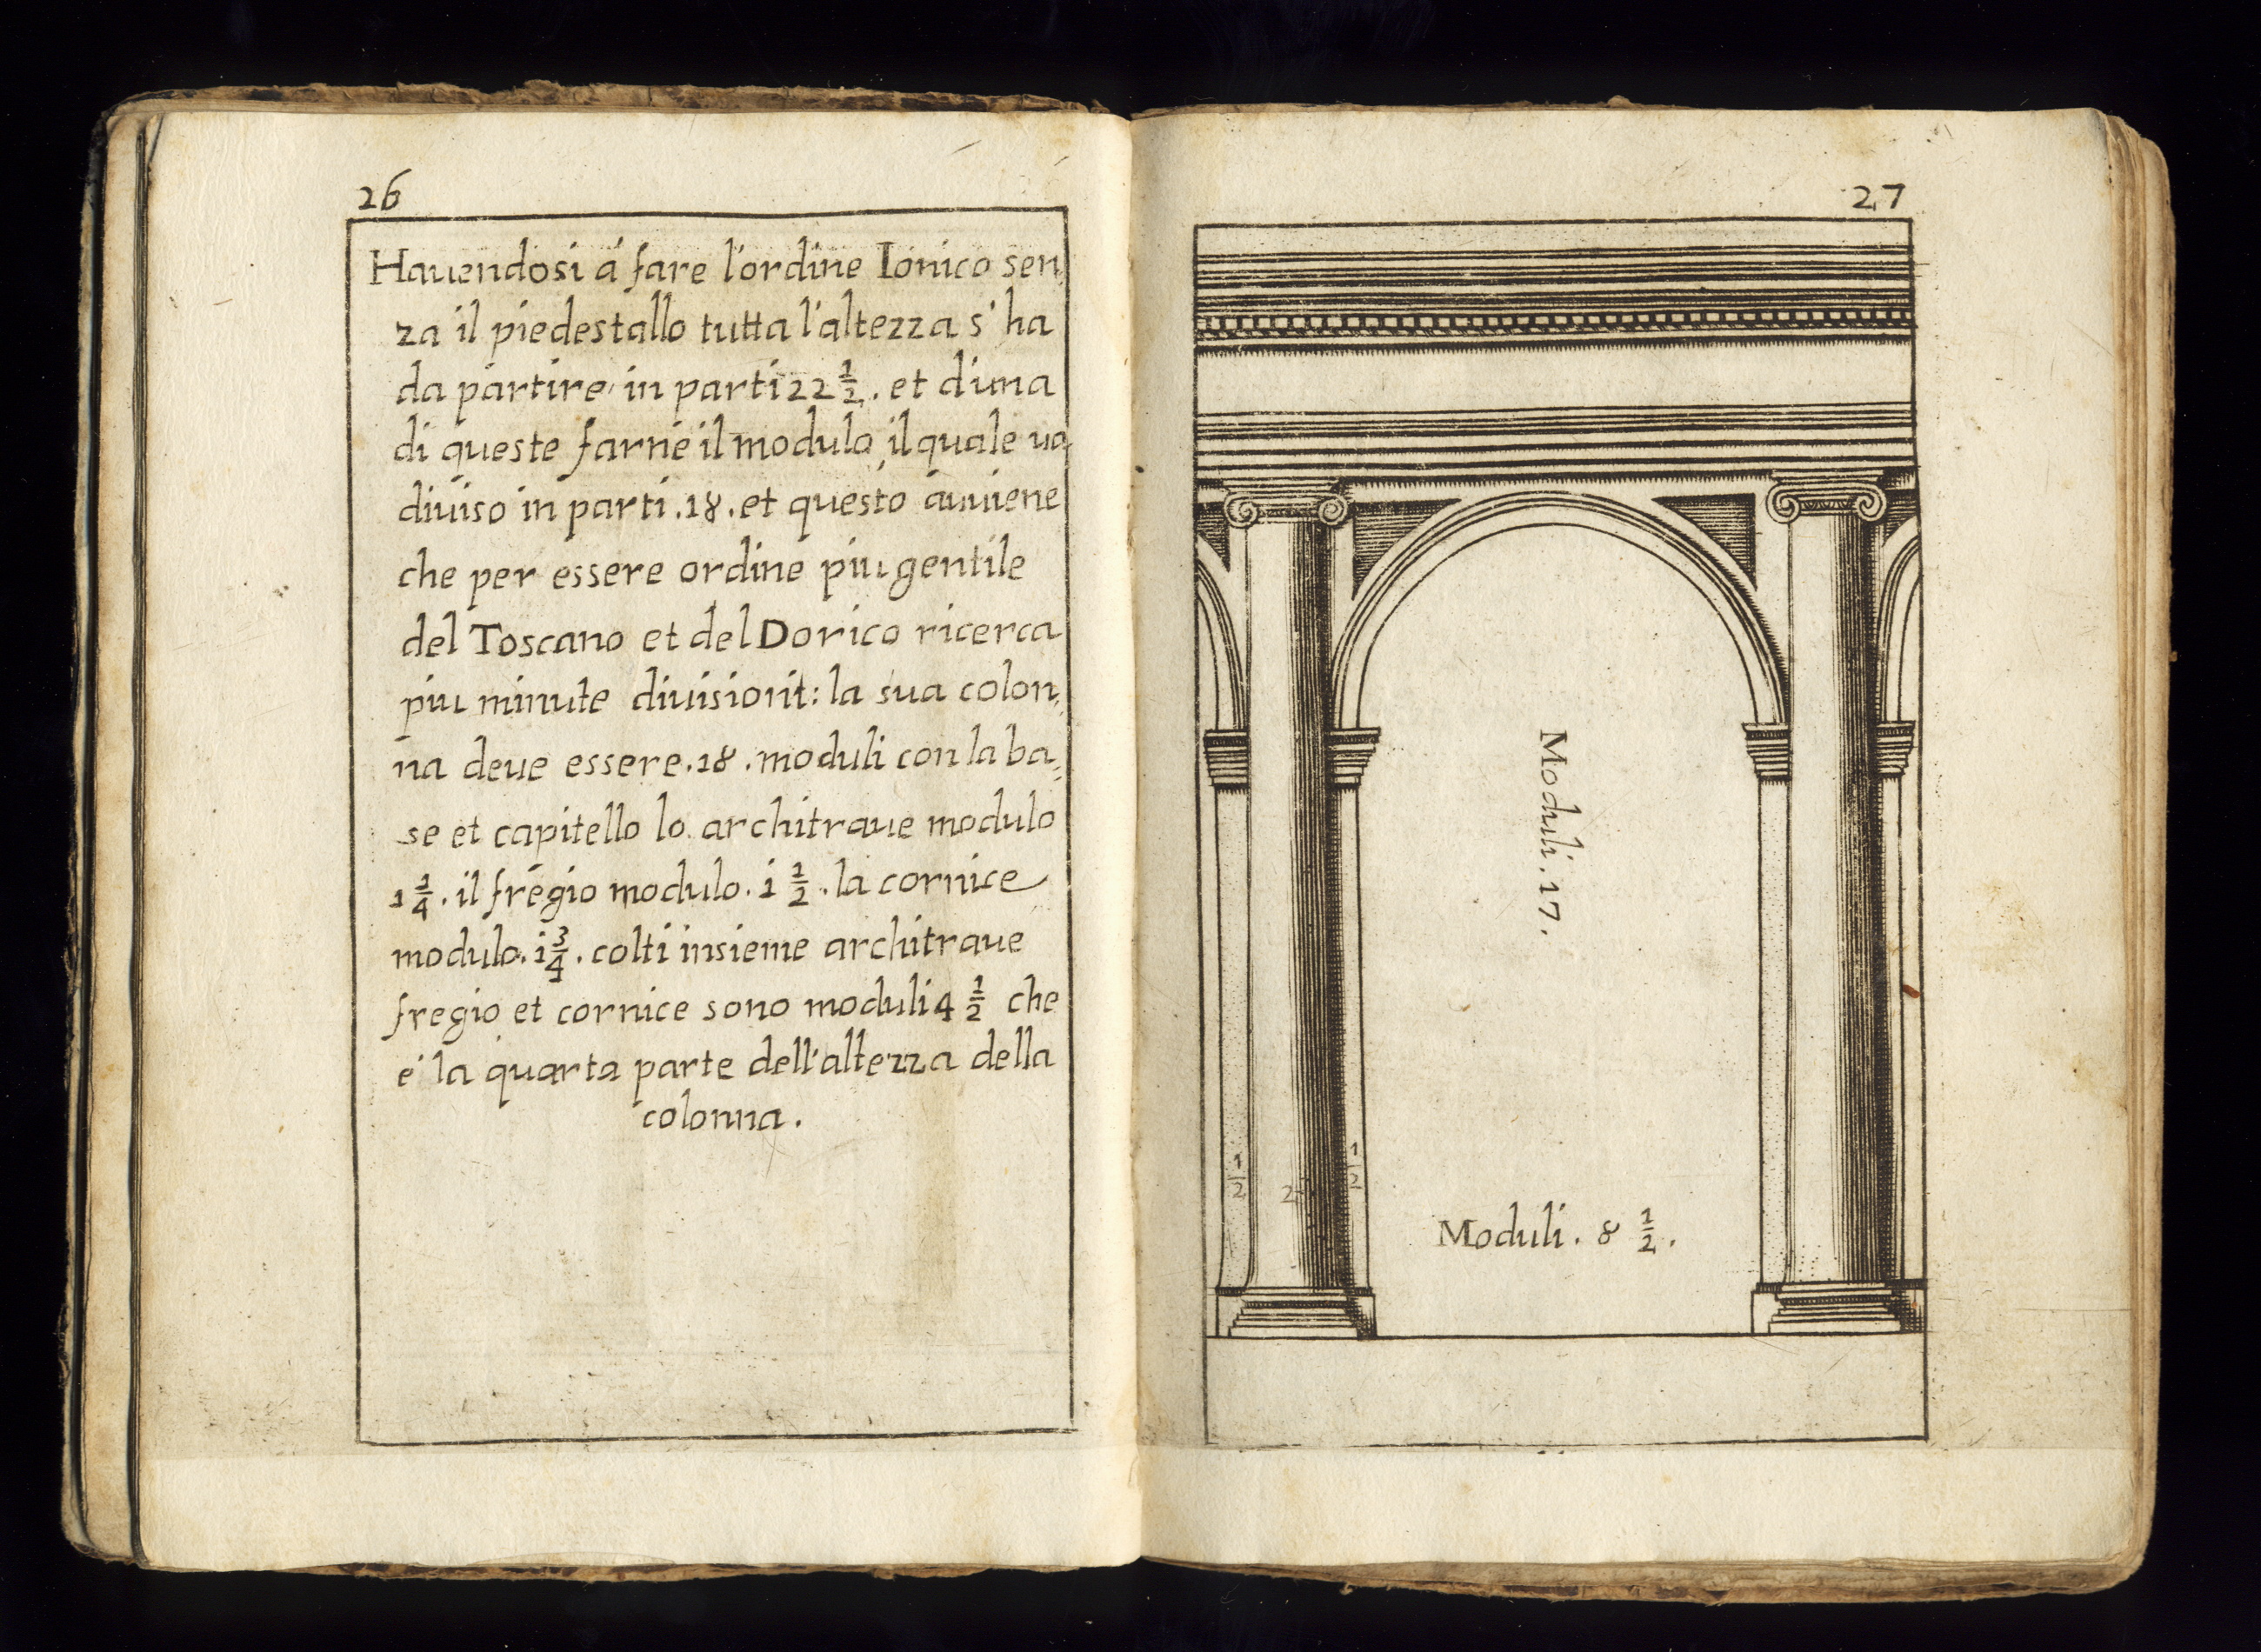 26
Hauendosi á fare l'ordine Ionico sen,
za il piedestallo tutta l'altezza s'ha
da partire in parti 22 1/2. et d'una
di queste farne il modulo, il quale ua
diuiso in parti .18. et questo auuiene
che per essere ordine piu gentile
del Toscano et del Dorico ricerca
piu minute diuisioni: la sua colon,,
na deue essere .18. moduli con la ba,,
se et capitello lo architraue modulo
1 1/4. il fregio modulo. i 1/2. la cornice
modulo. i 3/4. colti insieme architraue
fregio et cornice sono moduli 4 1/2 che
é la quarta parte dell'altezza della
colonna.
27
Moduli. 17.
1/2
2
1/2
Moduli. 8 1/2.